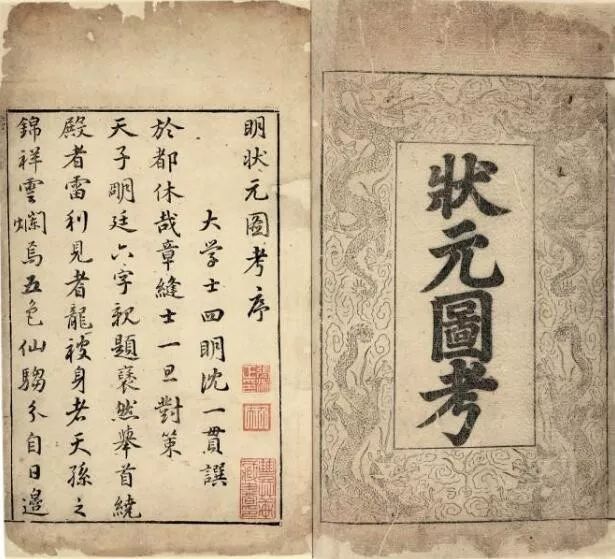 狀元圖考
明狀元圖考序
大学士四明沈一貫譔
於都休哉章縫士一旦對策
天子明廷六字親題褒然舉首繞
殿者雷利見者龍被身者天孫之
錦祥雲爛焉五色仙騶分自日邊